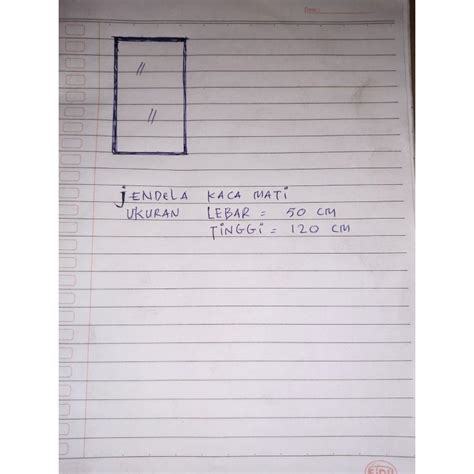 jENDELA KACA MATI
UKURAN LEBAR = 50 CM
TINGGI = 120 CM